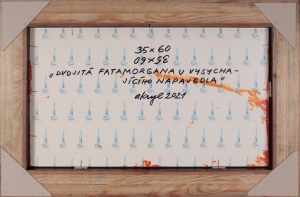 35×60
35×60
„DVOJITÁ FATAMORGANA U VYSYCHA-
JÍCÍHO NAPAJEDLA"
akryl 2021